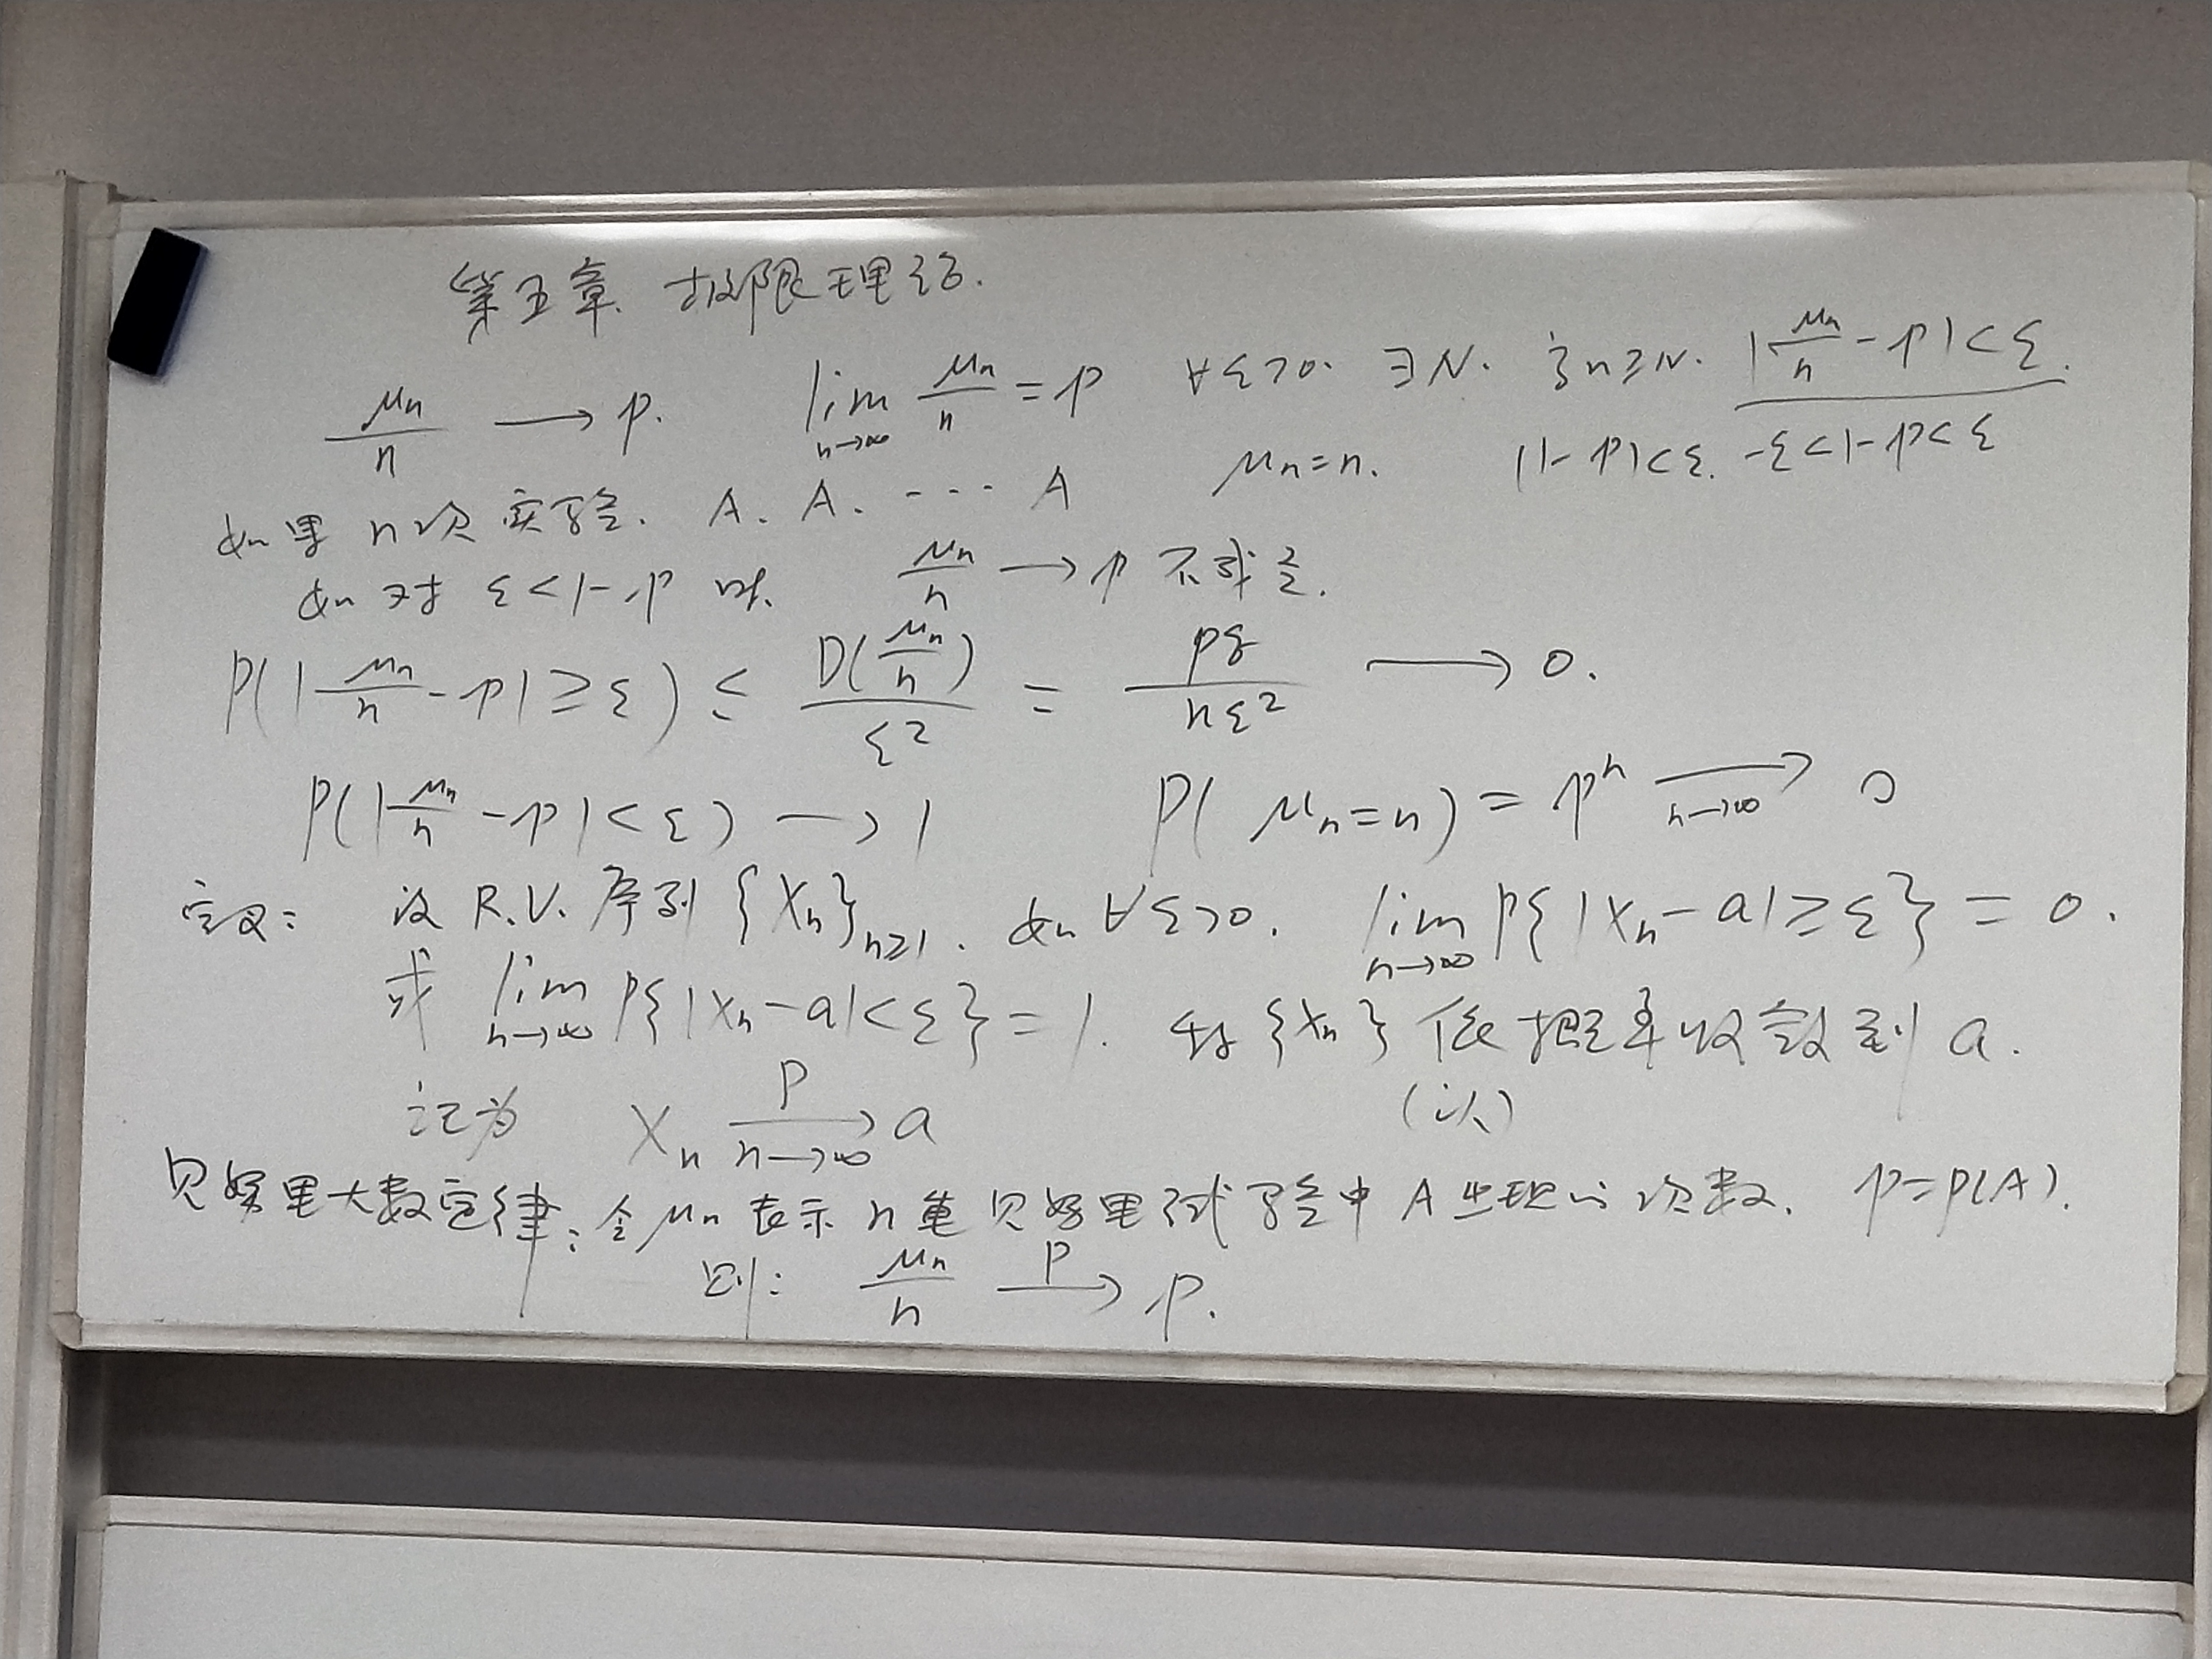 第五章. 极限理论.
μn/n → p. lim n→∞ μn/n = p ∀ε>0. ∃N. 当n≥N. |μn/n - p|<ε.
如果n次实验. A. A. ... A μn=n. |1-p|<ε. -ε<1-p<ε
如对 ε<1-p 时. μn/n → p 不成立.
P(|μn/n - p|≥ε) ≤ D(μn/n)/ε² = pq/nε² → 0.
P(|μn/n - p|<ε) → 1 P(μn=n) = pⁿ → n→∞ 0
定义: 设 R.V. 序列 {Xn}n≥1. 如∀ε>0. lim n→∞ P{|Xn-a|≥ε} = 0.
或 lim n→∞ P{|Xn-a|<ε} = 1. 称{Xn}依概率收敛到 a.
(以)
记为 Xn →P n→∞ a
贝努里大数定律: 令μn表示n重贝努里试验中A出现的次数. p=P(A).
则: μn/n →P p.